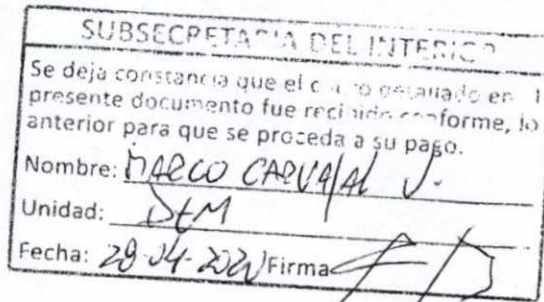 SUBSECRETARIA DEL INTERIOR
Se deja constancia que el detallado en
presente documento fue recibido conforme, lo
anterior para que se proceda a su pago.
Nombre: MARCO CARVAJAL V.
Unidad: DEM
Fecha: 28-04-2020 Firma